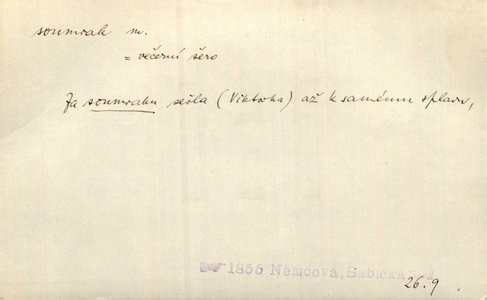 soumrak m.
= večerní šero
Za soumraku sešla (Viktorka) až k samému splavu,
1855 Němcová, Babička
26.9